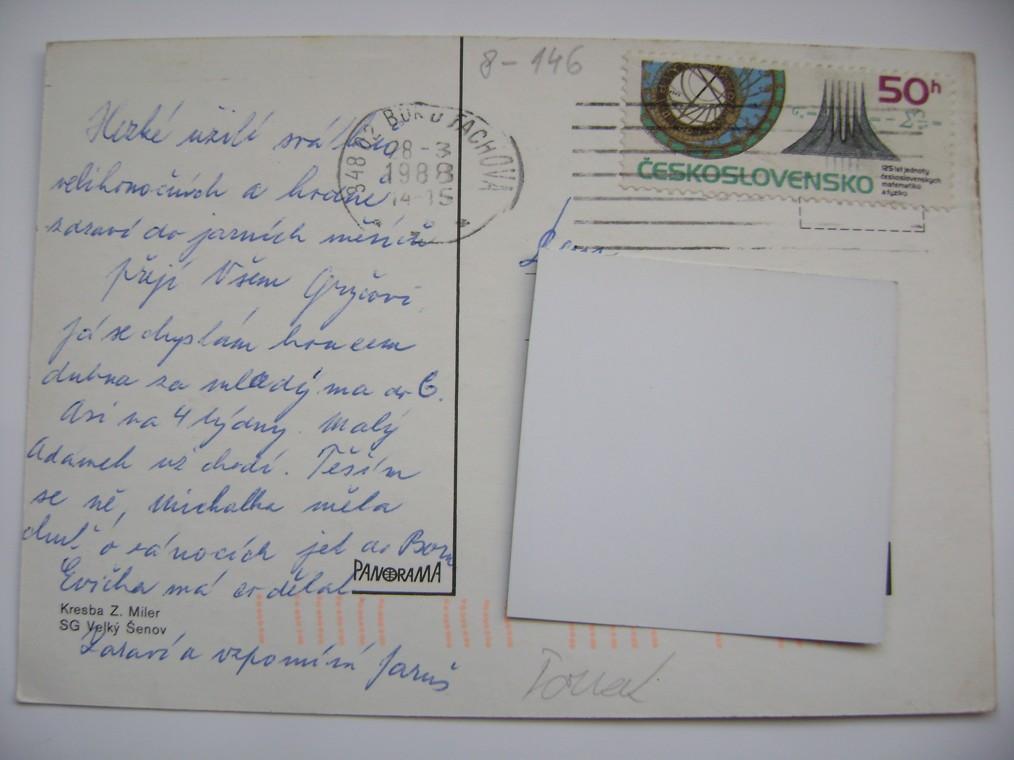 8-146
Hezké užití svátků
velikonočních a hodně
zdraví do jarních měsíců
přejí Všem
Já se chystám koncem
dubna za mladýma do
Asi na 4 týdny. Malý
Adámek už chodí. Těším
se ně, Michalka měla
chuť o vánocích jet do Boru
Evička má co dělat
Zdraví a vzpomíná Jaruš
348 02 BOR U TACHOVA
28-3
1988
14-15
50h
ČESKOSLOVENSKO
125 let jednoty
československých
matematiků
a fyziků
PANORAMA
Kresba Z. Miler
SG Velký Šenov